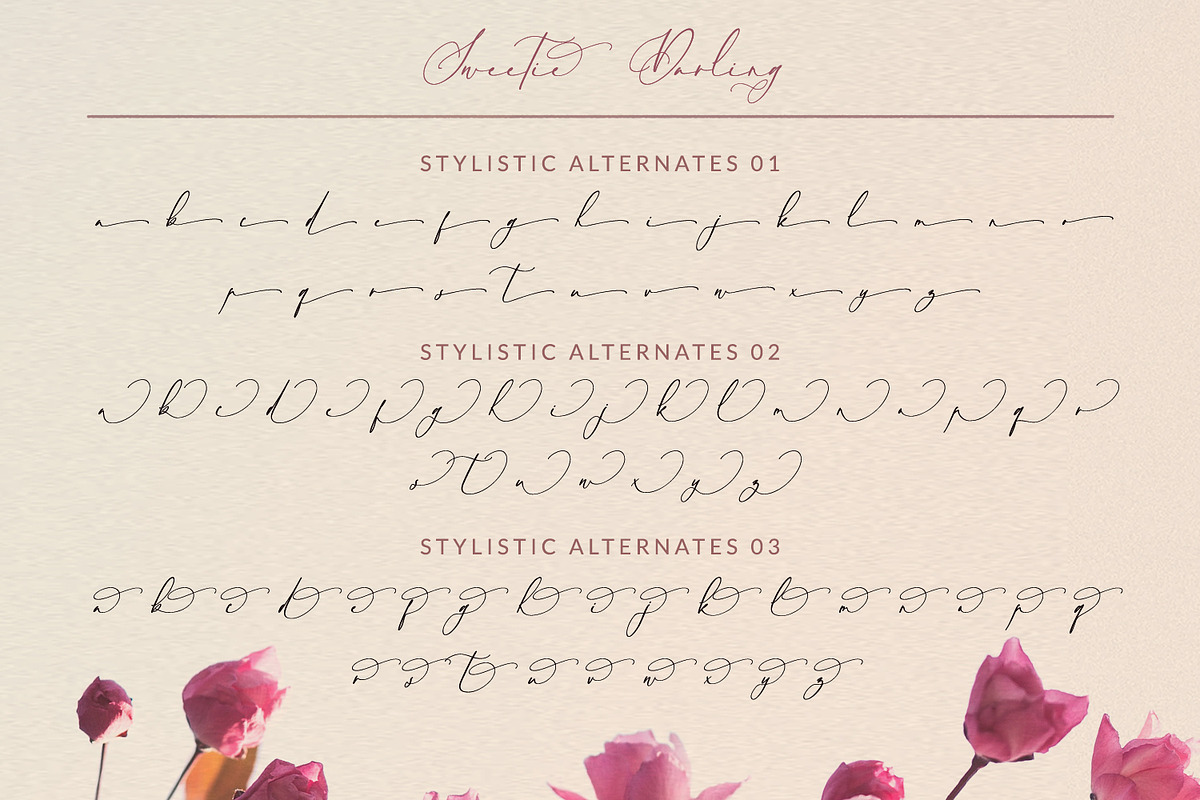 Sweetie Darling
STYLISTIC ALTERNATES 01
a b c d e f g h i j k l m n o
p q r s t u v w x y z
STYLISTIC ALTERNATES 02
a b c d e f g h i j k l m n o p q r
s t u w x y z
STYLISTIC ALTERNATES 03
a b c d e f g h i j k l m n o p q
r s t u v w x y z